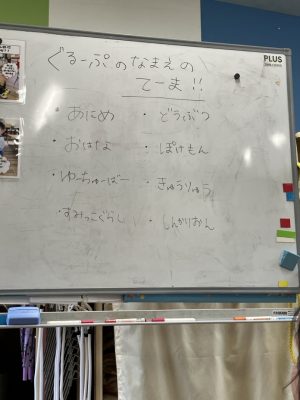 ぐるーぷのなまえの
てーま!!
・あにめ ・どうぶつ
・おはな ・ぽけもん
・ゆーちゅーばー ・きょうりゅう
・すみっこぐらし ・しんかりおん
PLUS